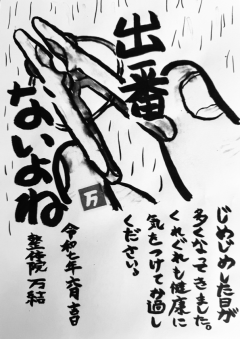 出番
ないよね
万
じめじめした日が
多くなってきました。
くれぐれも健康に
気をつけてお過し
ください。
令和七年六月吉日
整体院 万結